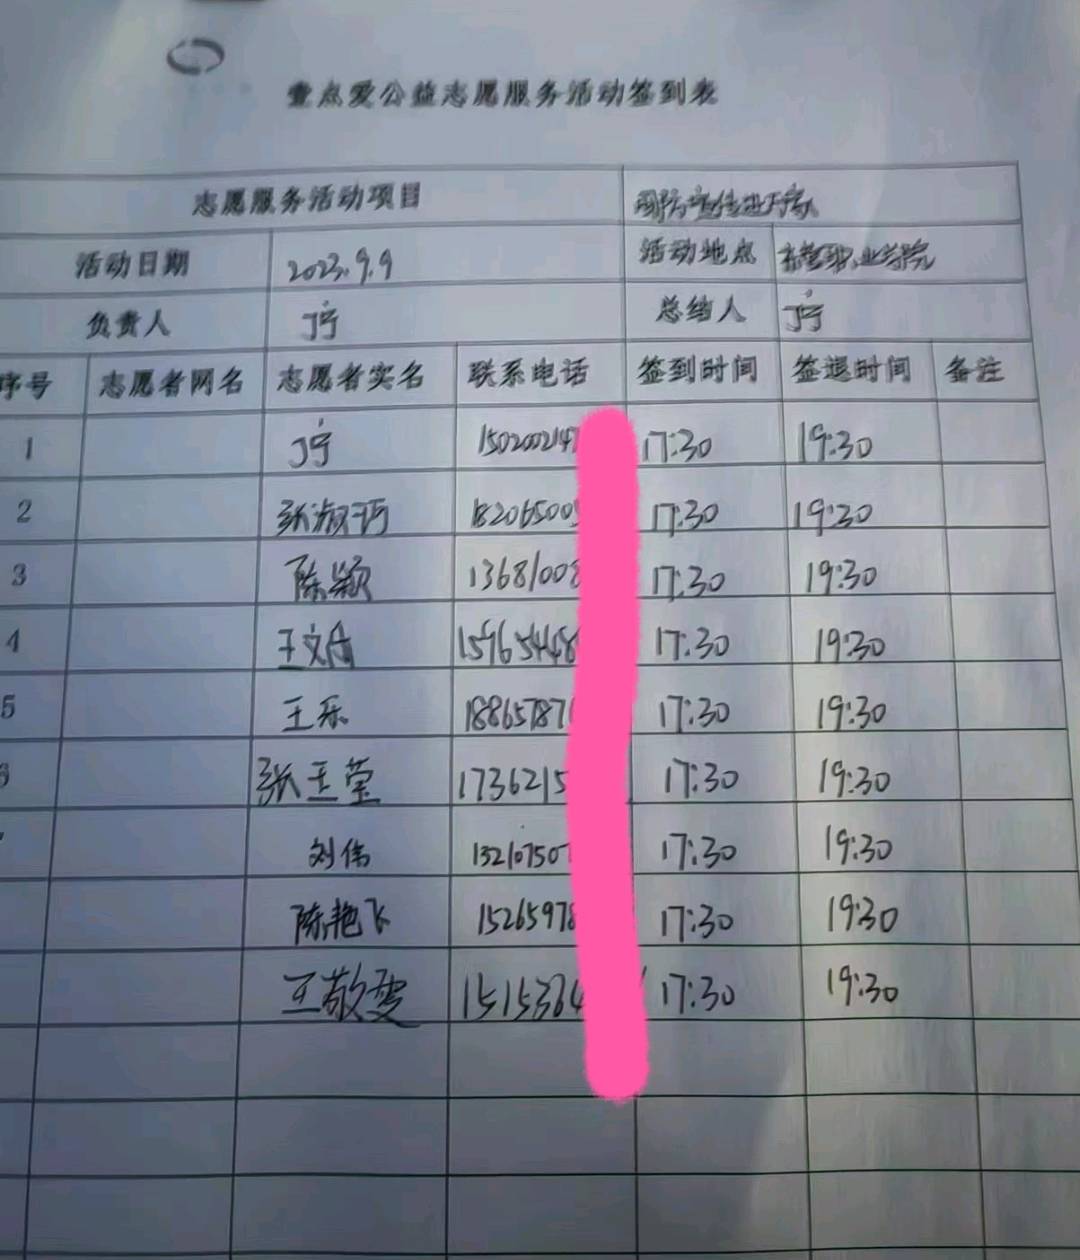 壹点爱公益志愿服务活动签到表
志愿服务活动项目 国防宣传进万家
活动日期 2023.9.9 活动地点 东营职业学院
负责人 丁宁 总结人 丁宁
序号 志愿者网名 志愿者实名 联系电话 签到时间 签退时间 备注
1 丁宁 150200214 17:30 19:30
2 张淑 18206500 17:30 19:30
3 陈颖 13681008 17:30 19:30
4 王文 15965448 17:30 19:30
5 王乐 18865787 17:30 19:30
张玉莹 1736215 17:30 19:30
刘伟 13210750 17:30 19:30
陈艳飞 15265978 17:30 19:30
王敬雯 1515364 17:30 19:30